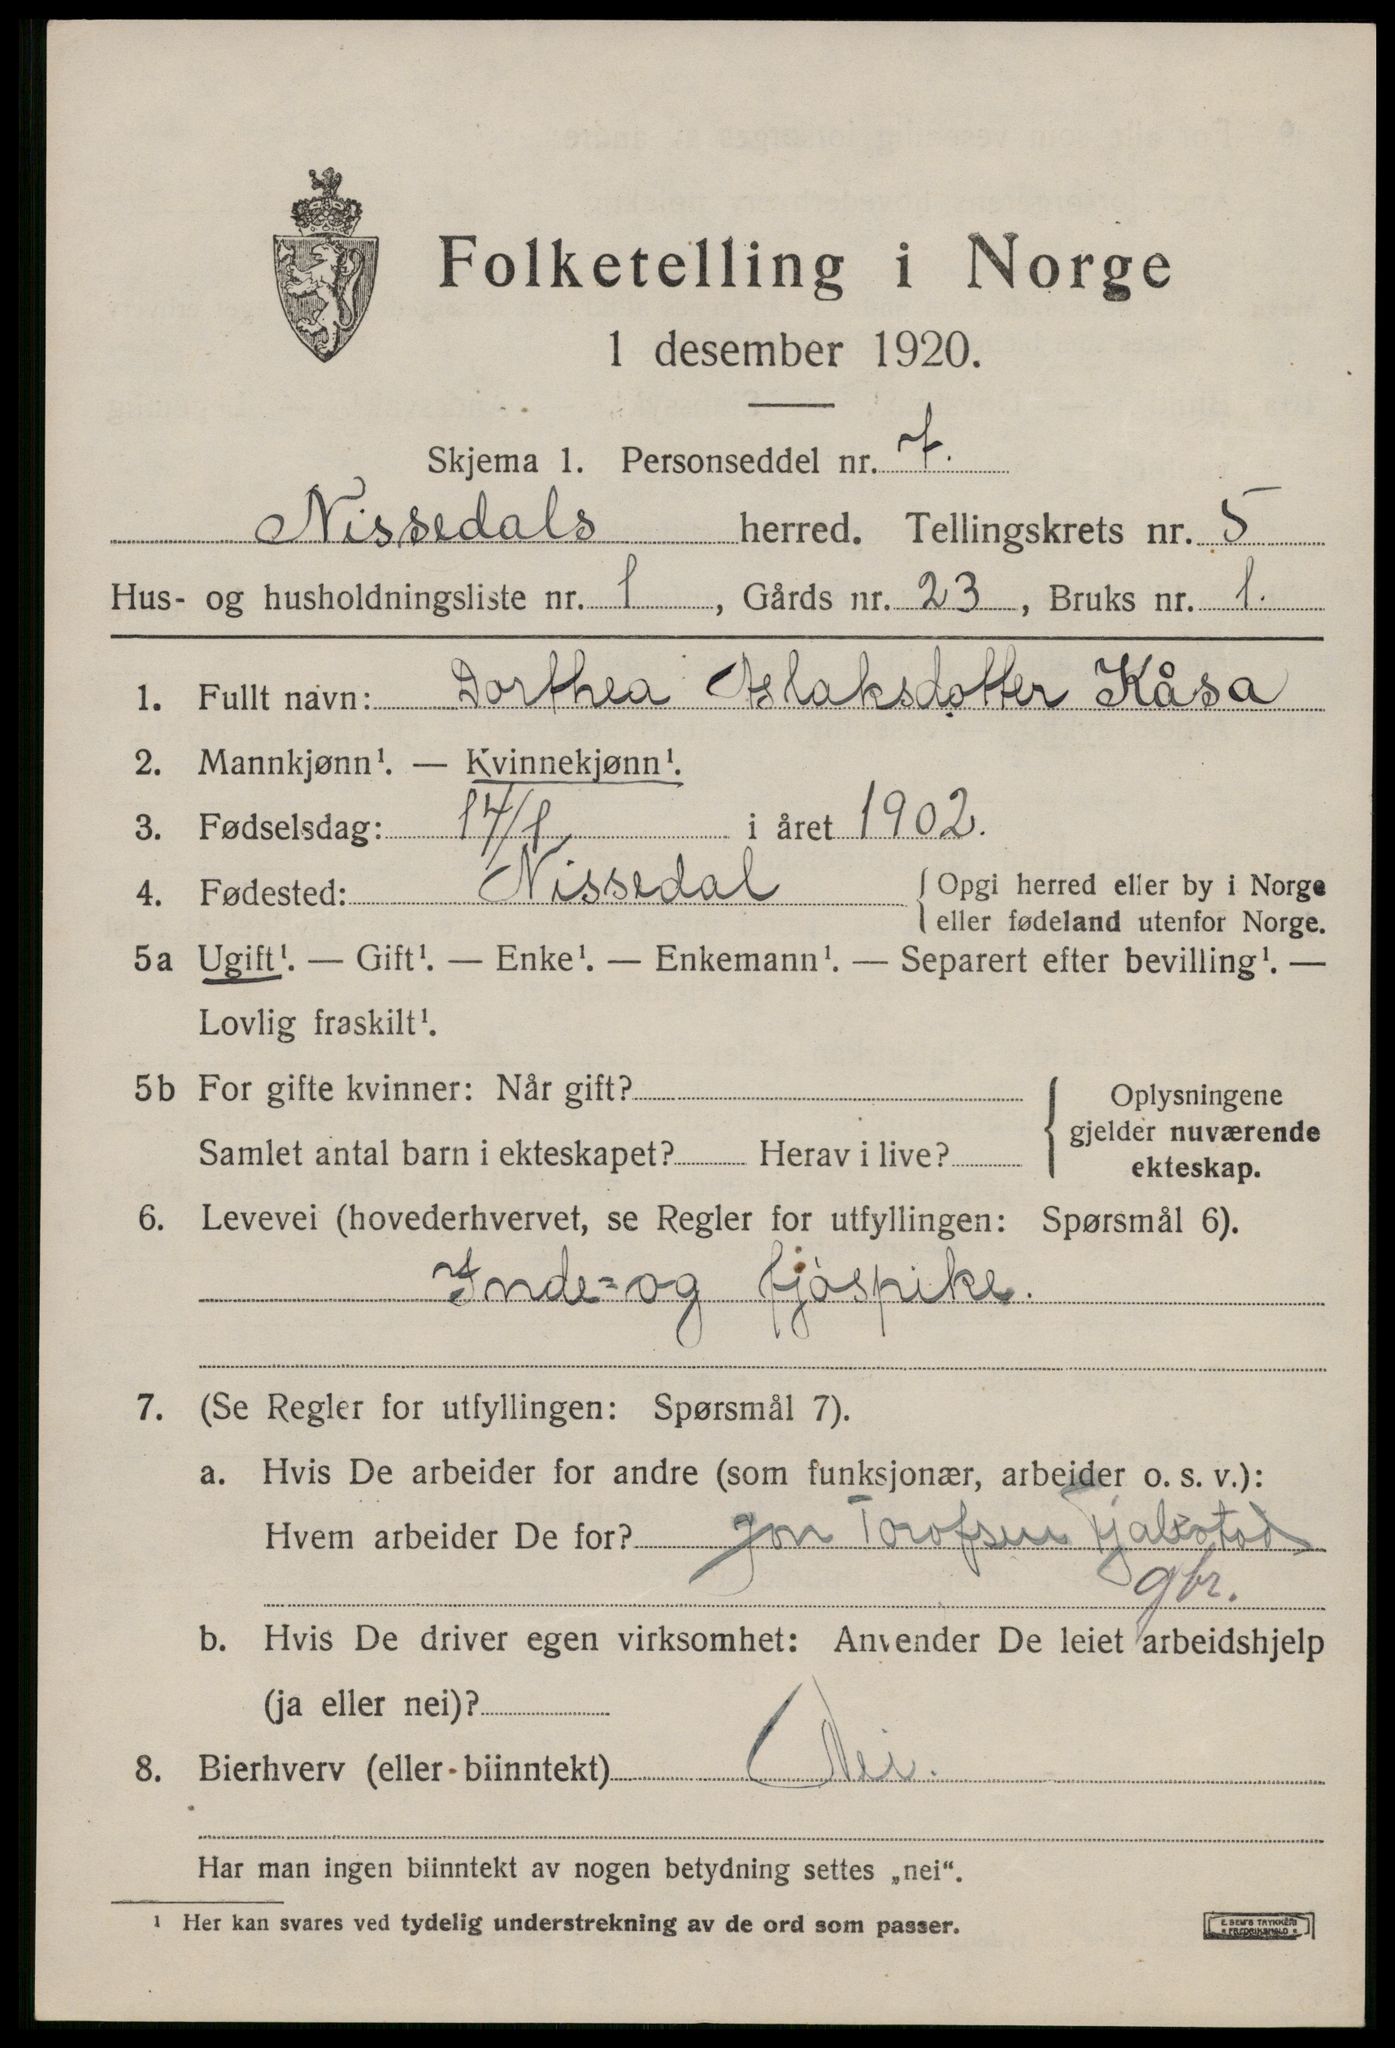 Folketelling i Norge
1 desember 1920.
Skjema 1. Personseddel nr. 7.
Nissedals herred. Tellingskrets nr. 5
Hus- og husholdningsliste nr. 1, Gårds nr. 23, Bruks nr. 1.
1. Fullt navn: Dorthea Aslaksdotter Kåsa
2. Mannkjønn¹. — Kvinnekjønn¹.
3. Fødselsdag: 14/1 i året 1902.
4. Fødested: Nissedal { Opgi herred eller by i Norge
eller fødeland utenfor Norge.
5a Ugift¹. — Gift¹. — Enke¹. — Enkemann¹. — Separert efter bevilling¹. —
Lovlig fraskilt¹.
5b For gifte kvinner: Når gift?
Samlet antal barn i ekteskapet? Herav i live?
Oplysningene
gjelder nuværende
ekteskap.
6. Levevei (hovederhvervet, se Regler for utfyllingen: Spørsmål 6).
Inde- og fjøspike.
7. (Se Regler for utfyllingen: Spørsmål 7).
a. Hvis De arbeider for andre (som funksjonær, arbeider o. s. v.):
Hvem arbeider De for? Jon Torofsen
gbr.
b. Hvis De driver egen virksomhet: Anvender De leiet arbeidshjelp
(ja eller nei)?
8. Bierhverv (eller biinntekt) Nei.
Har man ingen biinntekt av nogen betydning settes „nei“.
¹ Her kan svares ved tydelig understrekning av de ord som passer.
E. SEM'S TRYKKERI
FREDRIKSHALD